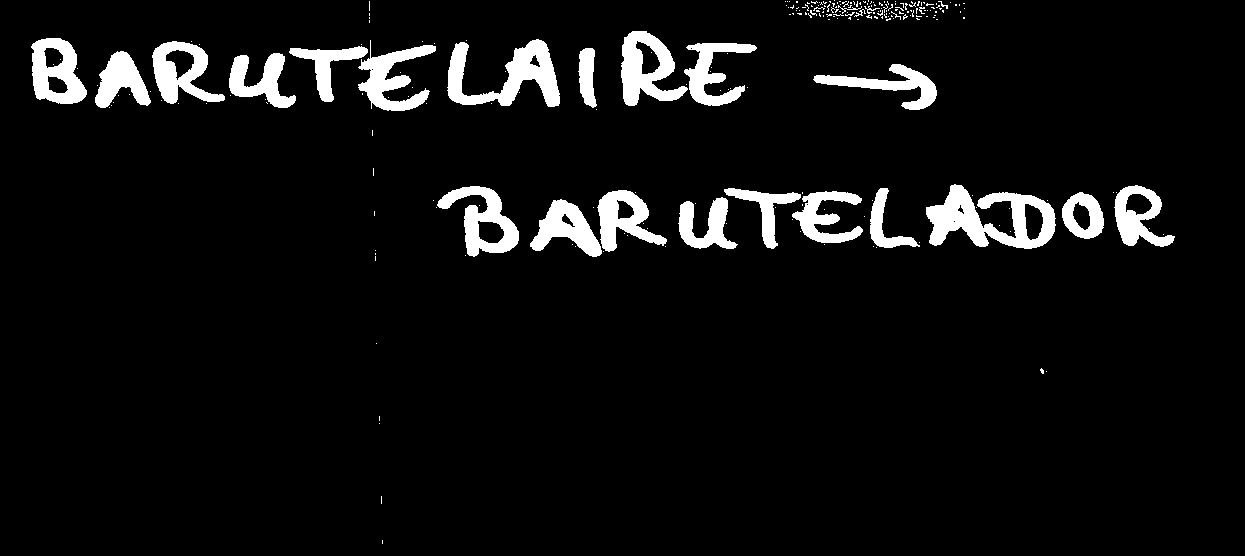 BARUTELAIRE →
BARUTELADOR